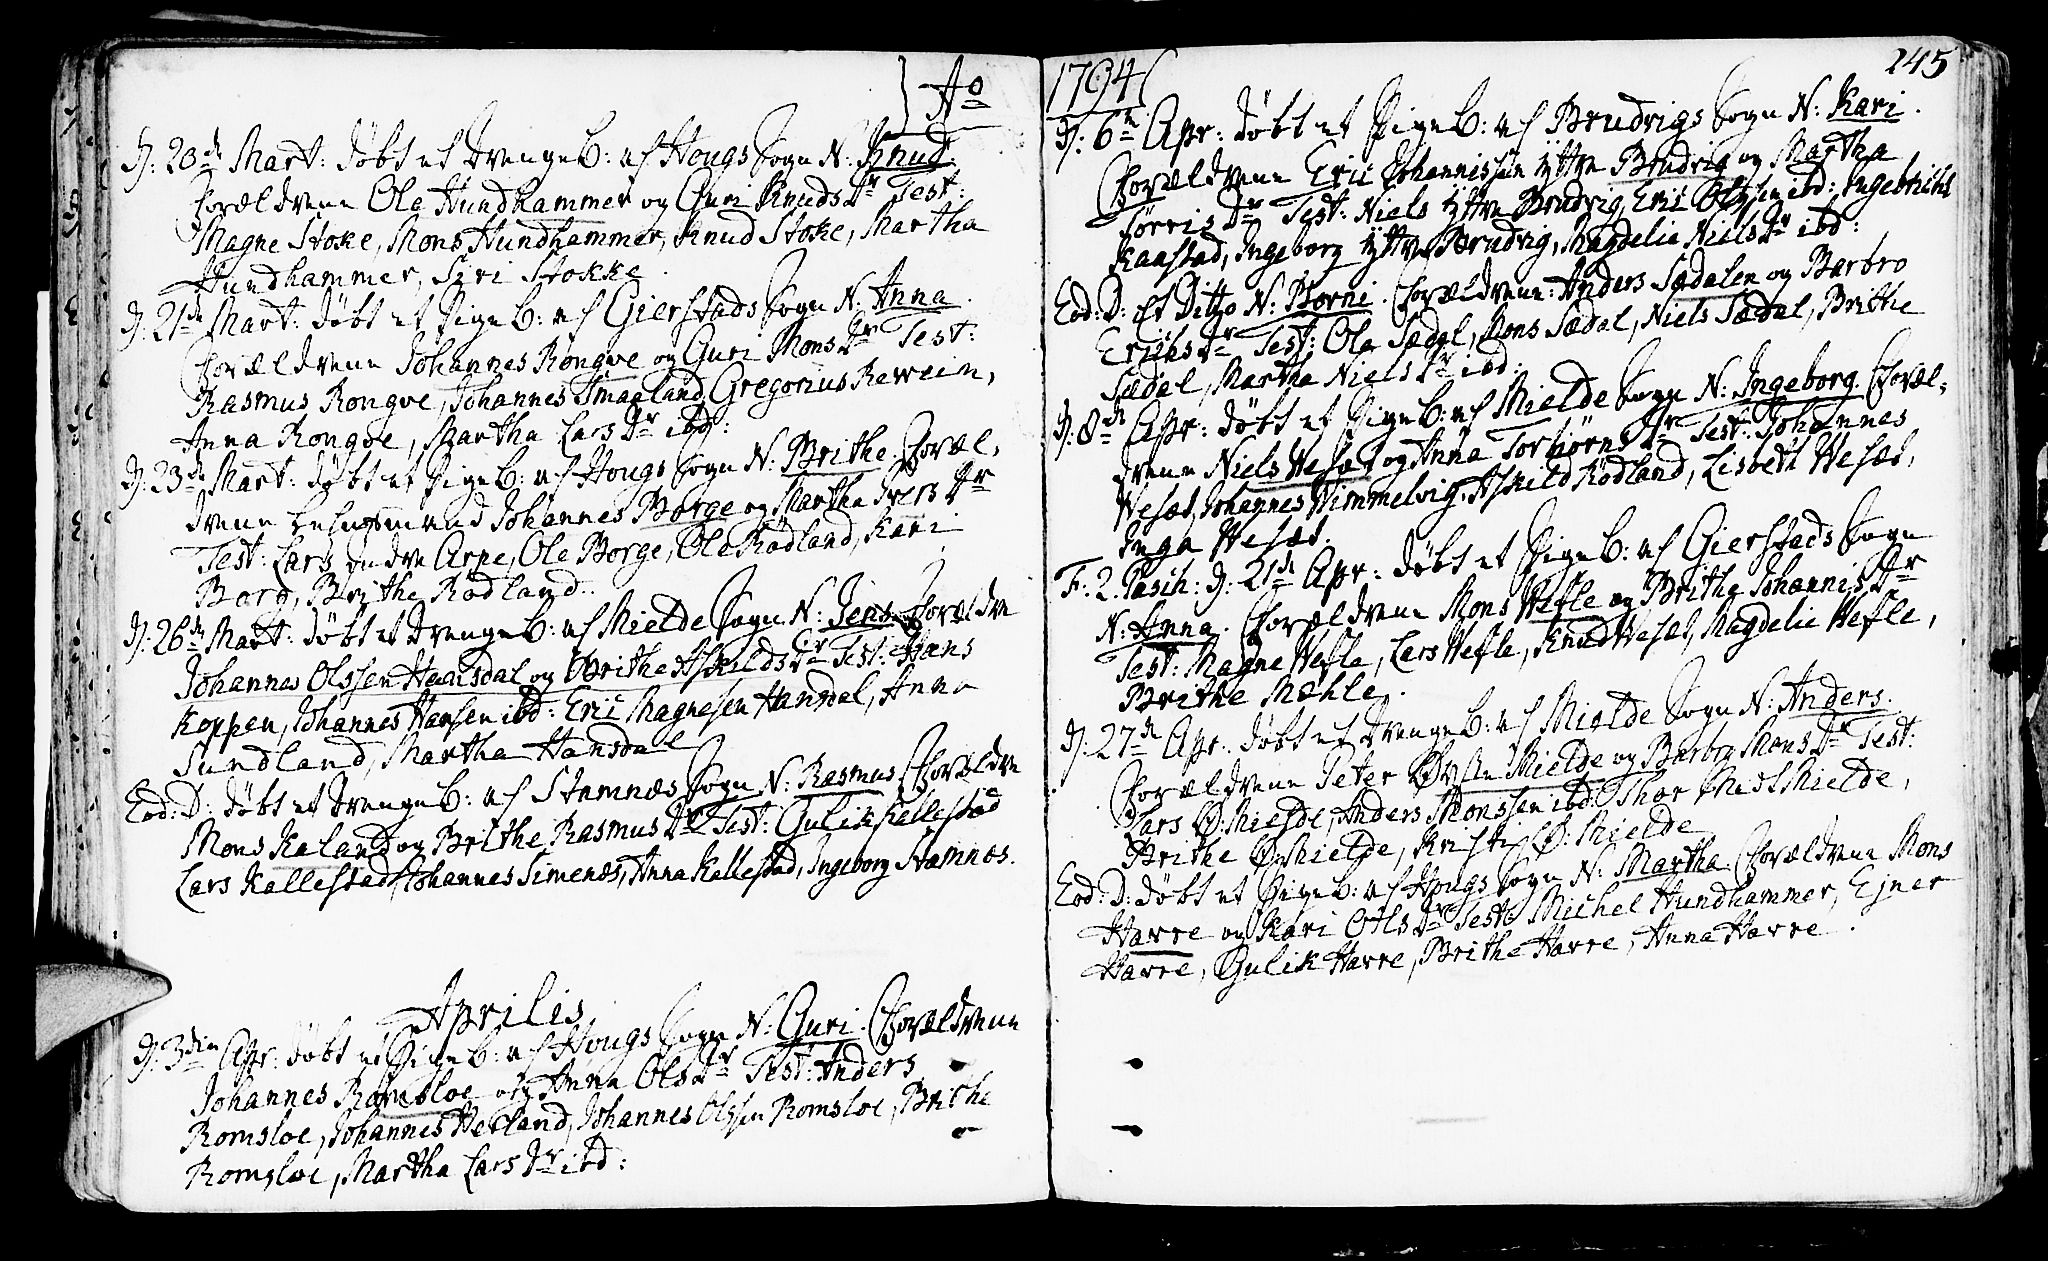 Ao
D: 20de Mart: døbt et Drenge B: af Hougs Sogn N: Knud
Forældrene Ole Hundhammer og Guri KnudsDr Test:
Magne Stoke, Mons Hundhammer, Knud Stoke, Martha
Hundhammer, Siri Stokke.
D: 21de Mart: døbt et Pige B: af Gierstads Sogn N: Anna.
Forældrene Johannes Rongve og Guri MonsDr Test:
Rasmus Rongve, Johannes Smaaland, Gregorius Rewein,
Anna Rongve, Martha LarsDr ibd:
D: 23de Mart: døbt et Pige B: af Hougs Sogn N: Brithe. Foræl-
drene Johannes Borge og Martha IversDr
Test: Lars Indre Arne, Ole Borge, Ole Rødland, Kari
Borg, Brithe Rødland.
D: 26de Mart: døbt et Drenge B: af Mielde Sogn N: Jens Forældre
Johannes Olssen Hansdal og Brithe AskildsDr Test: Hans
Koppen, Johannes Hansen ibd: Eric Magnesen Hansdal, Anna
Sundland, Martha Hansdal
Eod: D: døbt et Drenge B: af Stamnæs Sogn N: Rasmus Forældre
Mons Kaland og Brithe RasmusDr Test: Gulik Kallestad
Lars Kallestad, Johannes Simenæs, Anna Kallestad, Ingeborg Stamnæs.
Aprilis
D: 3dien Apr: døbt et Pige B: af Hougs Sogn N: Guri. Forældrene
Johannes Romsloe og Anna OlsDr Test: Anders
Romsloe, Johannes Herland, Johannes Olssen Romsloe, Brithe
Romsloe, Martha LarsDr ibd:
1794
245
D: 6te Apr: døbt et Pige B: af Brudvigs Sogn N: Kari.
Forældrene Eric Johannissen Yttre Brudvig og Martha
TørrisDr Test: Niels Yttre Brudvig, Eric Olssen ibd: Ingebricht
Kaastad, Ingeborg Yttre Brudvig, Magdelie NielsDr ibd:
Eod: D: et Ditto N: Børni. Forældrene: Anders Sædalen og Barbro
EricksDr Test: Ole Sædal, Mons Sædal, Niels Sædal, Brithe
Sædal, Martha NielsDr ibd:
D: 8de Apr: døbt et Pige B: af Mielde Sogn N: Ingeborg. Foræl-
drene Niels Wesæt og Anna TorbiørnsDr Test: Johannes
Wesæt, Johannes Wimmelvig, Askild Rødland, Lisbeth Wesæt,
Inga Wesæt.
F: 2. Pasch: D: 21de Apr: døbt et Pige B: af Gierstads Sogn
N: Anna. Forældrene Mons Wefle og Brithe JohannisDr
Test: Magne Wefle, Lars Wefle, Knud Wesæt, Magdelie Wefle,
Brithe Mæhle.
D: 27de Apr: døbt et Drenge B: af Mielde Sogn N: Anders.
Forældrene Peter Øvste Mielde og Barbro MonsDr Test:
Lars Ø: Mielde, Anders Monssen ibd: Thor Midt Mielde,
Brithe Ø: Mielde, Kristi Ø: Mielde
Eod: D: døbt et Pige B: af Hougs Sogn N: Martha. Forældrene Mons
Havre og Kari OlsDr Test: Michel Hundhammer, Ejner
Havre, Gulik Havre, Brithe Havre, Anna Havre.